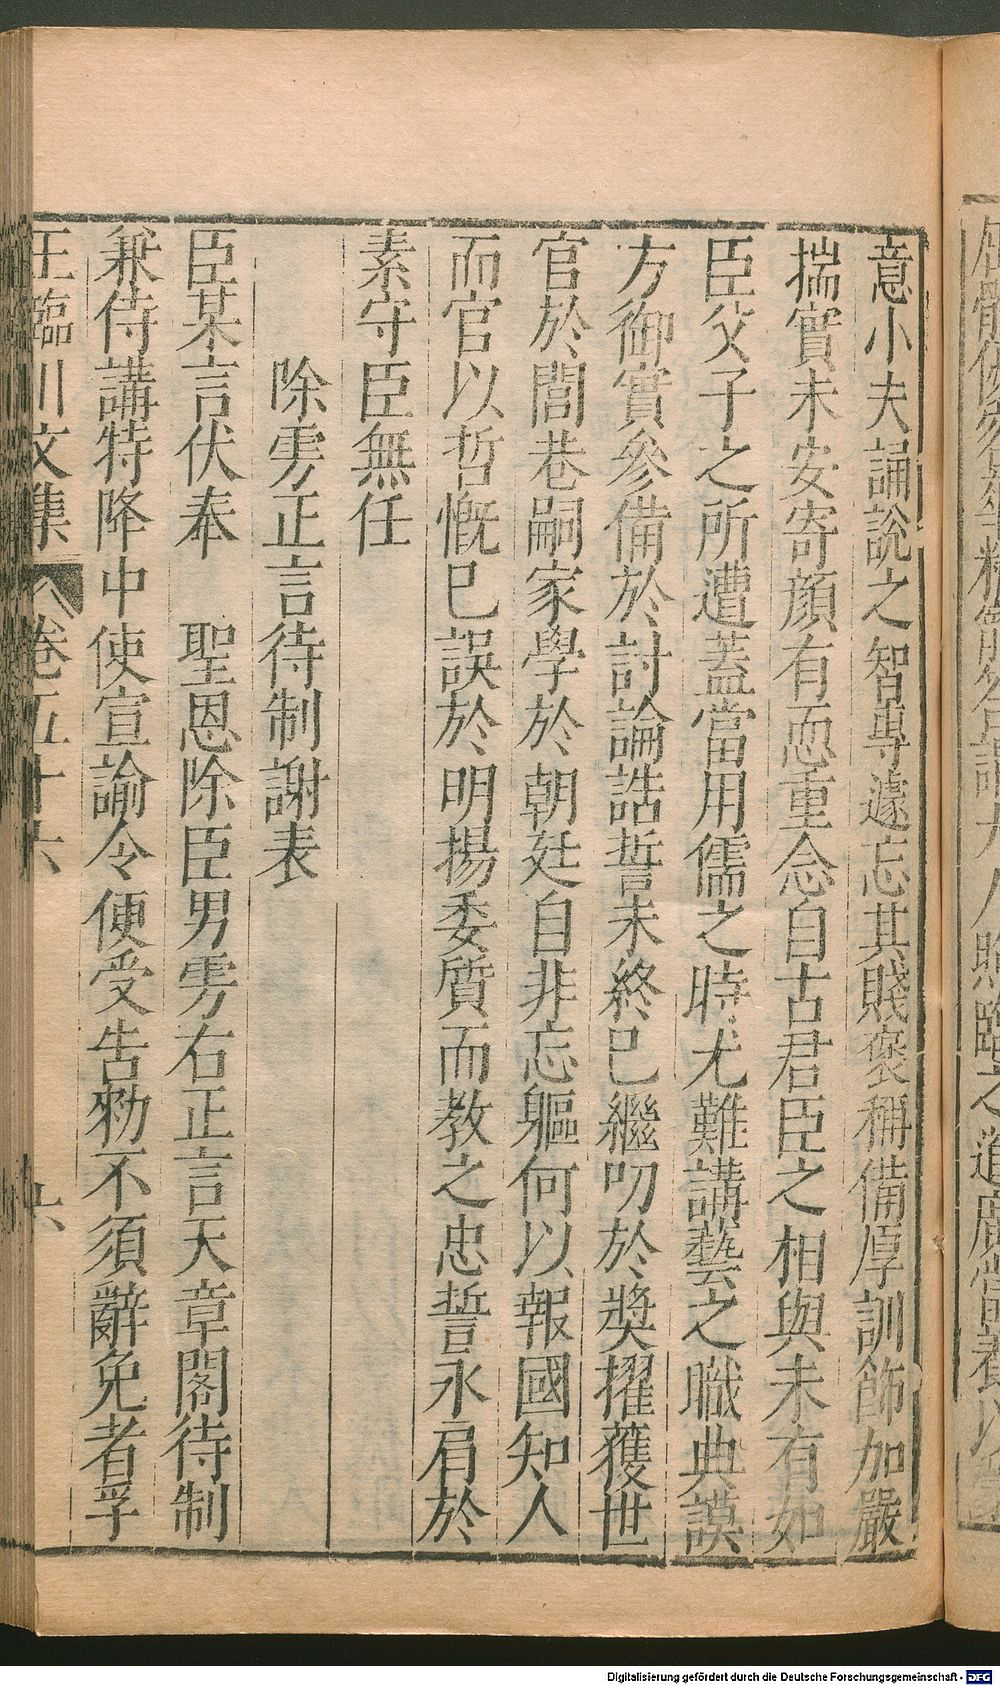 意小夫誦說之智專遽忘其賤褒稱備厚訓飾加嚴
揣實未安寄顏有恧重念自古君臣之相與未有如
臣父子之所遭蓋當用儒之時尤難講藝之職典謨
方御實參備於討論誥誓未終已繼叨於奬擢獲世
官於閭巷嗣家學於朝廷自非忘軀何以報國知人
而官以哲慨已誤於明揚委質而教之忠誓永肩於
素守臣無任
除雱正言待制謝表
臣某言伏奉　聖恩除臣男雱右正言天章閣待制
兼侍講特降中使宣諭令便受告勑不須辭免者孚
王臨川文集 卷五十六 六
Digitalisierung gefördert durch die Deutsche Forschungsgemeinschaft - DFG